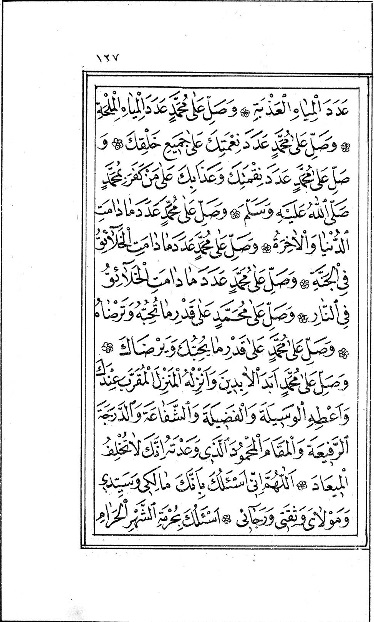 ١٢٧
عَدَدَ الْمِيَاهِ الْعَذْبَةِ ❁ وَصَلِّ عَلَى مُحَمَّدٍ عَدَدَ الْمِيَاهِ الْمِلْحَةِ
❁ وَصَلِّ عَلَى مُحَمَّدٍ عَدَدَ نِعْمَتِكَ عَلَى جَمِيعِ خَلْقِكَ ❁ وَ
صَلِّ عَلَى مُحَمَّدٍ عَدَدَ نِقْمَتِكَ وَعَذَابِكَ عَلَى مَنْ كَفَرَ بِمُحَمَّدٍ
صَلَّى اللهُ عَلَيْهِ وَسَلَّمَ ❁ وَصَلِّ عَلَى مُحَمَّدٍ عَدَدَ مَا دَامَتِ
الدُّنْيَا وَالْآخِرَةُ ❁ وَصَلِّ عَلَى مُحَمَّدٍ عَدَدَ مَا دَامَتِ الْخَلَائِقُ
فِي الْجَنَّةِ ❁ وَصَلِّ عَلَى مُحَمَّدٍ عَدَدَ مَا دَامَتِ الْخَلَائِقُ
فِي النَّارِ ❁ وَصَلِّ عَلَى مُحَمَّدٍ عَلَى قَدْرِ مَا تُحِبُّهُ وَتَرْضَاهُ
❁ وَصَلِّ عَلَى مُحَمَّدٍ عَلَى قَدْرِ مَا يُحِبُّكَ وَيَرْضَاكَ ❁
وَصَلِّ عَلَى مُحَمَّدٍ أَبَدَ الْآبِدِينَ وَأَنْزِلْهُ الْمَنْزِلَ الْمُقَرَّبَ عِنْدَكَ
وَأَعْطِهِ الْوَسِيلَةَ وَالْفَضِيلَةَ وَالشَّفَاعَةَ وَالدَّرَجَةَ
الرَّفِيعَةَ وَالْمَقَامَ الْمَحْمُودَ الَّذِي وَعَدْتَهُ إِنَّكَ لَا تُخْلِفُ
الْمِيعَادَ ❁ اَللّٰهُمَّ إِنِّي أَسْئَلُكَ بِأَنَّكَ مَالِكِي وَسَيِّدِي
وَمَوْلَايَ وَثِقَتِي وَرَجَائِي ❁ أَسْئَلُكَ بِحُرْمَةِ الشَّهْرِ الْحَرَامِ